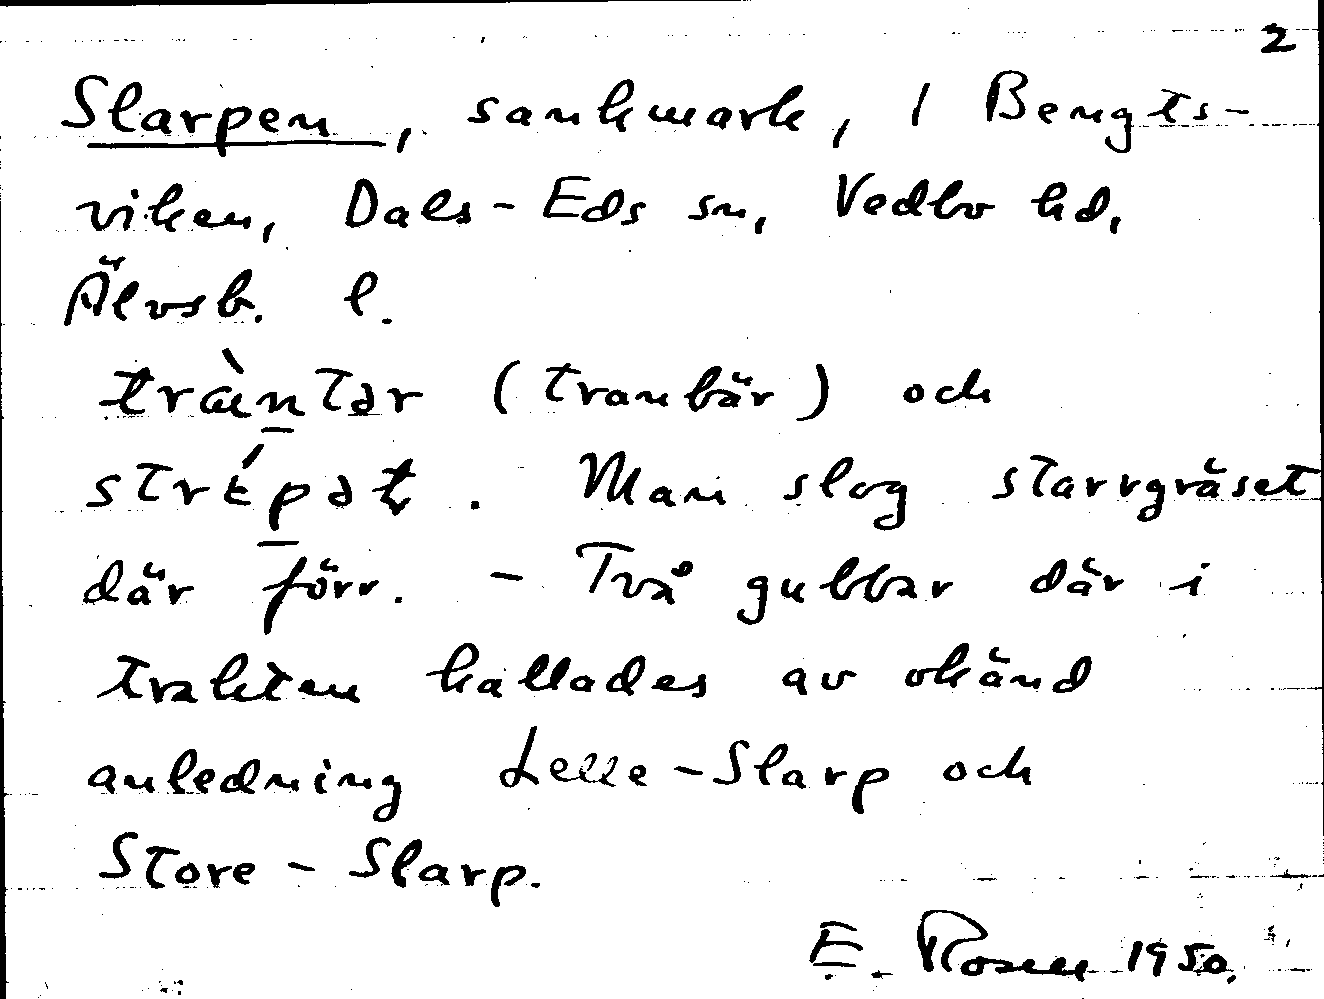 2
Slarpen, sankmark, 1 Bengts-
viken, Dals-Eds sn, Vedbo hd,
Älvsb. l.
tràntər (tranbär) och
strɛ́pət. Man slog starrgräset
där förr. - Två gubbar där i
trakten kallades av okänd
anledning Lelle-Slarp och
Store-Slarp.
E. Rosell 1950.